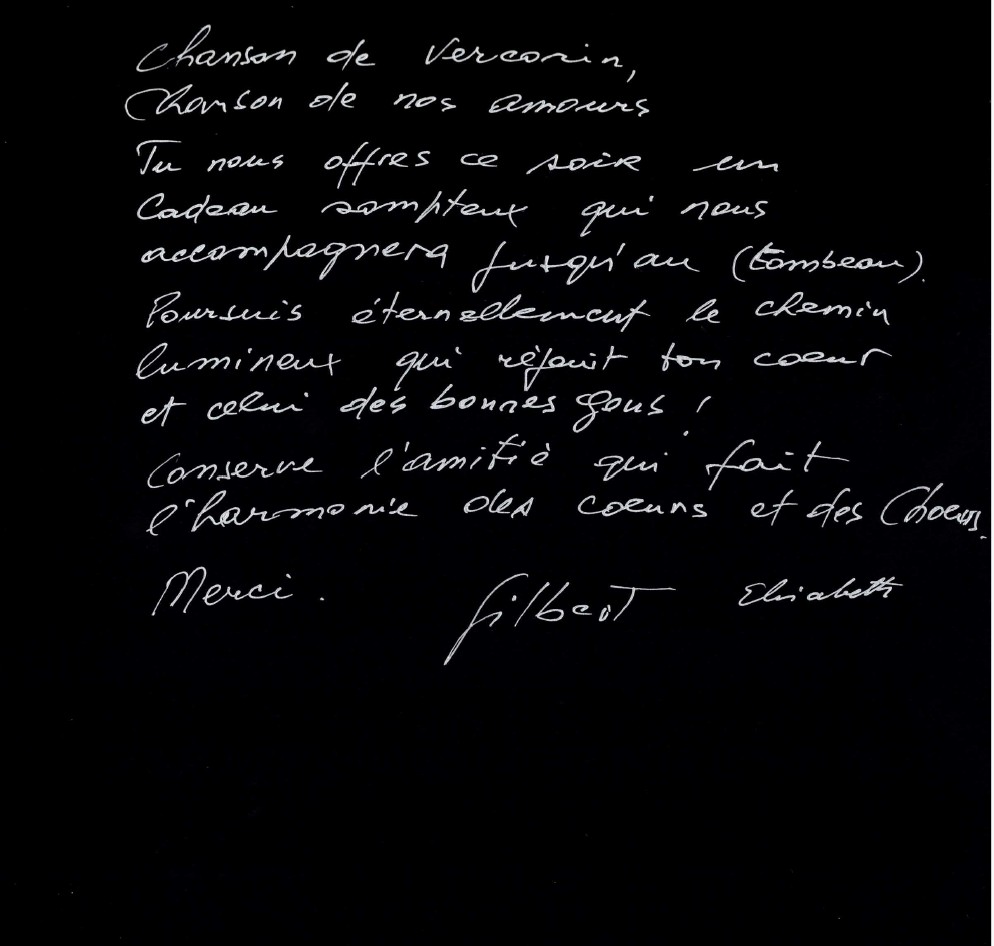 Chanson de Vercorin,
Chanson de nos amours
Tu nous offres ce soir un
Cadeau sompteux qui nous
accompagnera jusqu'au (tombeau).
Poursuis éternellement le chemin
lumineux qui réjouit ton coeur
et celui des bonnes gens !
Conserve l'amitié qui fait
l'harmonie des coeurs et des Choeurs.
Merci. Gilbert Elisabeth